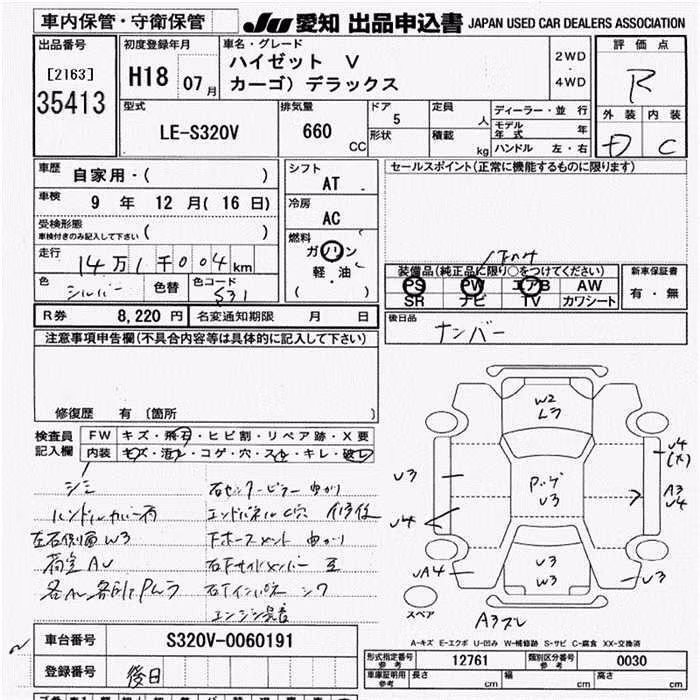 車内保管・守衛保管
JU 愛知 出品申込書 JAPAN USED CAR DEALERS ASSOCIATION
出品番号
[2163]
35413
初度登録年月
H18 07月
車名・グレード
ハイゼット V
カーゴ) デラックス
2WD
4WD
評価点
R
外装 内装
D C
型式
LE-S320V
排気量
660
CC
ドア
5
形状
定員
人
積載
kg
ディーラー・並行
モデル年式 年
ハンドル 左・右
車歴
自家用・( )
車検
9 年 12 月( 16 日)
受検形態
車検付きのみ記入して下さい ( )
走行
14万1千004km
色 シルバー 色替 色コード S31
シフト
AT
冷房
AC
燃料
ガソリン
軽・油
( )
セールスポイント(正常に機能するものに限ります)
装備品(純正品に限り○をつけてください)
PS PW エアB AW
SR ナビ TV カワシート
新車保証書
有・無
R券 8,220 円 名変通知期限 月 日
後日品
ナンバー
注意事項申告欄(不具合内容等は具体的に記入して下さい)
修復歴 有 (箇所 )
検査員記入欄
FW キズ・飛石・ヒビ割・リペア跡・X要
内装 キズ・汚レ・コゲ・穴・スレ・キレ・破レ
シミ
ハンドルカバー有
左右側面W3
荷室AU
石センターピラー曲がり
エンドパネルC穴 修復
W2
L3
U3
U4
U4
A3
U4
U3
U3
W3
UA4
U3
A3スレ
スペア
A-キズ E-エクボ U-凹み W-補修跡 S-サビ C-腐食 XX-交換済
車台番号 S320V-0060191
登録番号 後日
形式指定番号 参考 12761 類別区分番号 参考 0030
車庫証明用 参考 長さ cm 幅 cm 高さ cm